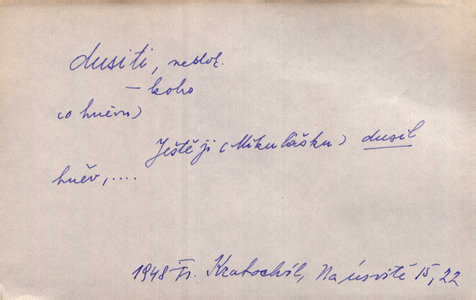 dusiti, nedok.
— koho
(o hněvu)
Ještě ji (Mikulášku) dusil
hněv, ....
1948 Fr. Kratochvíl, Na úsvitě 15, 22